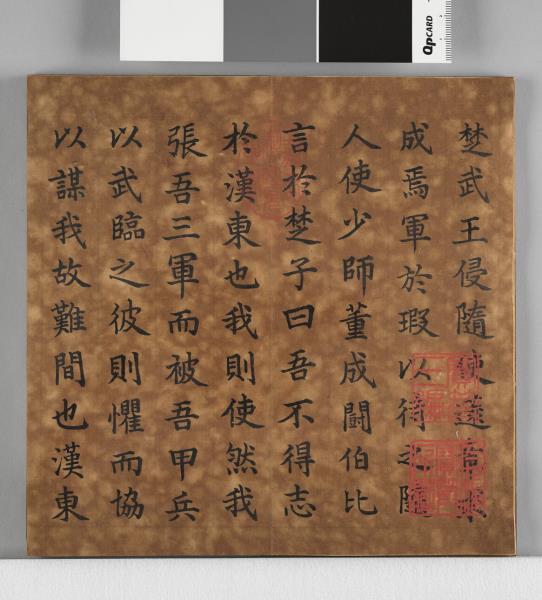 QPCARD
楚武王侵隨使薳章求
成焉軍於瑕以待之隨
人使少師董成鬭伯比
言於楚子曰吾不得志
於漢東也我則使然我
張吾三軍而被吾甲兵
以武臨之彼則懼而協
以謀我故難間也漢東